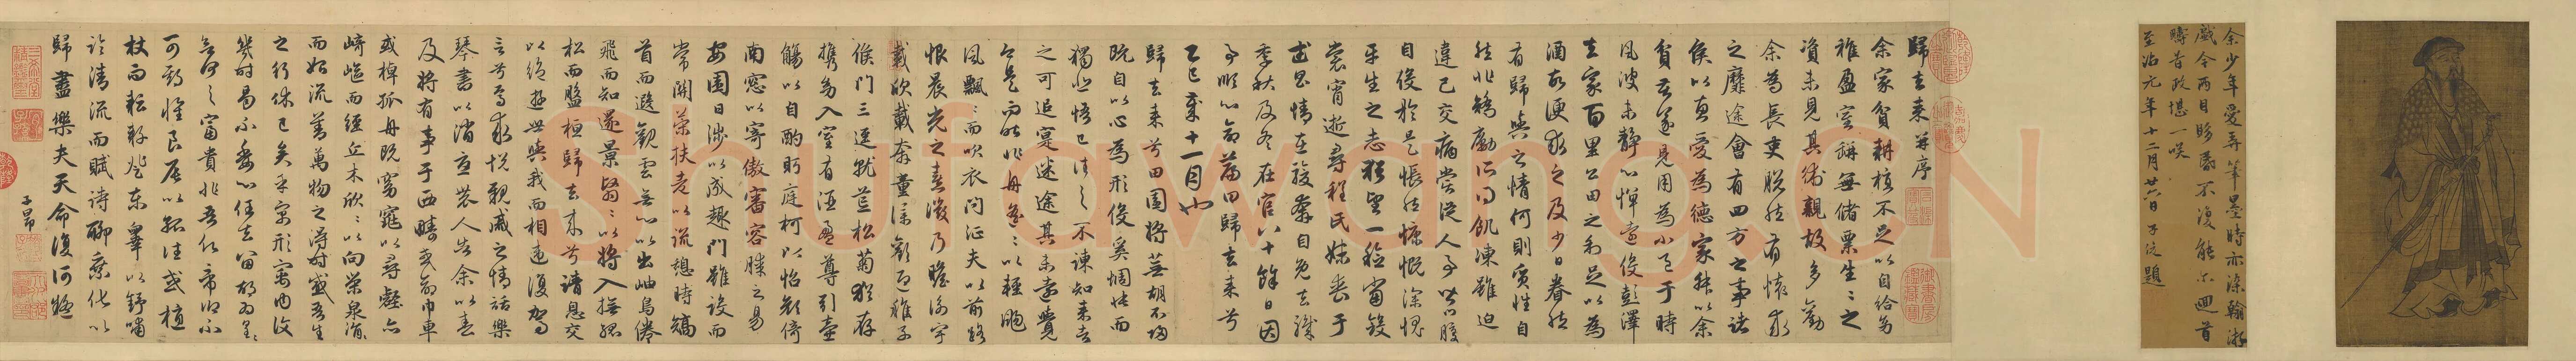 余少年愛弄筆墨時亦染翰游
戯今兩目眵昏不復能尔迴首
疇昔政堪一咲
至治元年十二月廿六日子俊題
歸去来并序
余家貧耕植不足以自給幼
稚盈室缾無儲粟生〻之
資未見其術親故多勸
余為長吏脱然有懷求
之靡途會有四方之事諸
侯以惠愛為德家叔以余
貧苦遂見用為小邑于時
風波未靜心憚遠役彭澤
去家百里公田之利足以為
酒故便求之及少日眷然
有歸與之情何則質性自
然非矯勵所得飢凍雖迫
違己交病嘗從人事皆口腹
自役於是悵然慷慨深愧
平生之志猶望一稔當斂
裳宵逝尋程氏妹喪于
武昌情在駿奔自免去職
季秋及冬在官八十餘日因
事順心命篇曰歸去来兮
乙巳歲十一月也
歸去来兮田園將蕪胡不歸
既自以心為形役奚惆悵而
獨悲悟已往之不諫知来者
之可追寔迷途其未遠覺
今是而昨非舟遙〻以輕颺
風飄〻而吹衣問征夫以前路
恨晨光之熹微乃瞻衡宇
載欣載奔童僕歡迎稚子
候門三逕就荒松菊猶存
携幼入室有酒盈尊引壺
觴以自酌眄庭柯以怡顔倚
南窓以寄傲審容膝之易
安園日涉以成趣門雖設而
常關策扶老以流憩時矯
首而遐觀雲無心以出岫鳥倦
飛而知還景翳〻以將入撫孤
松而盤桓歸去来兮請息交
以絶遊世與我而相違復駕
言兮焉求悦親戚之情話樂
琴書以消憂農人告余以春
及將有事于西疇或命巾車
或棹孤舟既窈窕以尋壑亦
崎嶇而經丘木欣〻以向榮泉涓〻
而始流善萬物之得時感吾生
之行休已矣乎寓形宇内復
幾時曷不委心任去留胡為遑〻
欲何之富貴非吾願帝鄉不
可期懷良辰以孤往或植
杖而耘耔登東臯以舒嘯
臨清流而賦詩聊乘化以
歸盡樂夫天命復何疑
子昂
Shufawang.CN